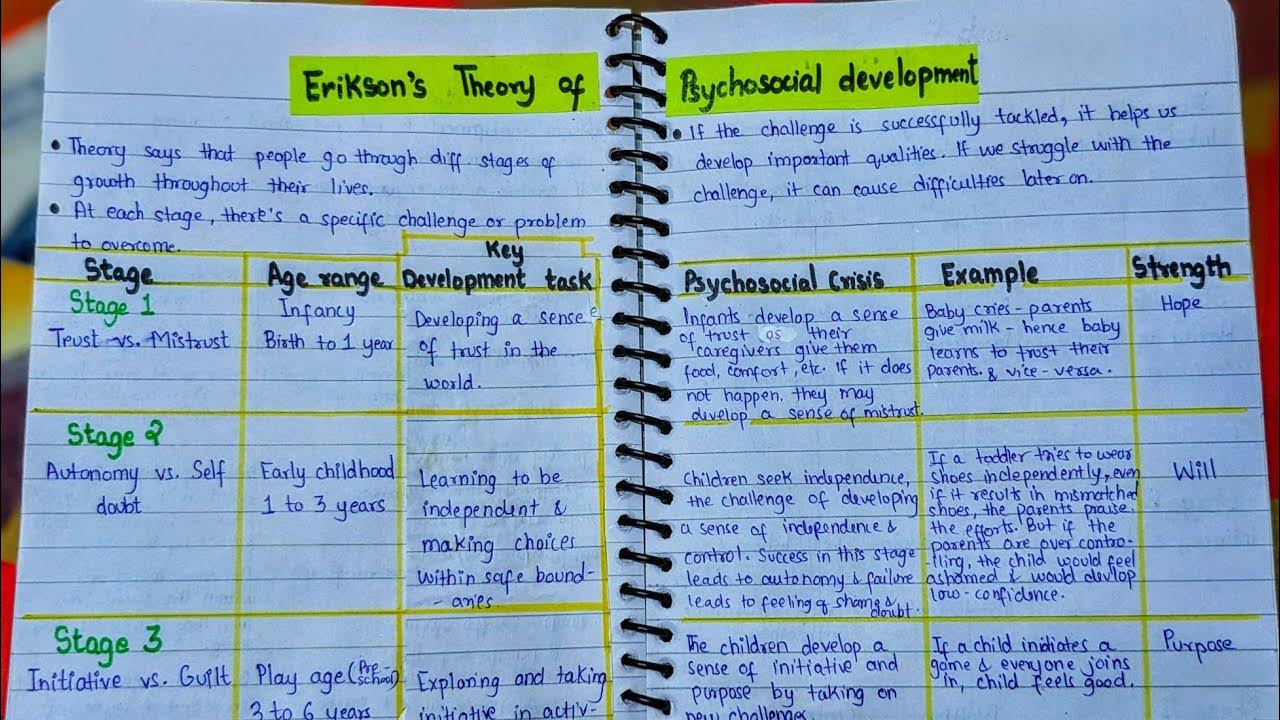 Erikson's Theory of
Psychosocial development
• Theory says that people go through diff stages of
growth throughout their lives.
• At each stage, there's a specific challenge or problem
to overcome.
• If the challenge is successfully tackled, it helps us
develop important qualities. If we struggle with the
challenge, it can cause difficulties later on.
Stage
Age range
Key
Development task
Psychosocial Crisis
Example
Strength
Stage 1
Trust vs. Mistrust
Infancy
Birth to 1 year
Developing a sense
of trust in the
world.
Infants develop a sense
of trust as their
caregivers give them
food, comfort, etc. If it does
not happen, they may
develop a sense of mistrust.
Baby cries - parents
give milk - hence baby
learns to trust their
parents. & vice-versa.
Hope
Stage 2
Autonomy vs. Self
doubt
Early childhood
1 to 3 years
Learning to be
independent &
making choices
within safe bound-
-aries.
Children seek independence,
the challenge of developing
a sense of independence &
control. Success in this stage
leads to autonomy & failure
leads to feeling of shame &
doubt.
If a toddler tries to wear
shoes independently, even
if it results in mismatched
shoes, the parents praise
the efforts. But if the
parents are over contro-
-lling, the child would feel
ashamed & would devlop
low-confidence.
Will
Stage 3
Initiative vs. Guilt
Play age (Pre-
school)
3 to 6 years
Exploring and taking
initiative in activ-
The children develop a
sense of initiative and
purpose by taking on
new challenges
If a child initiates a
game & everyone joins
in, child feels good.
Purpose